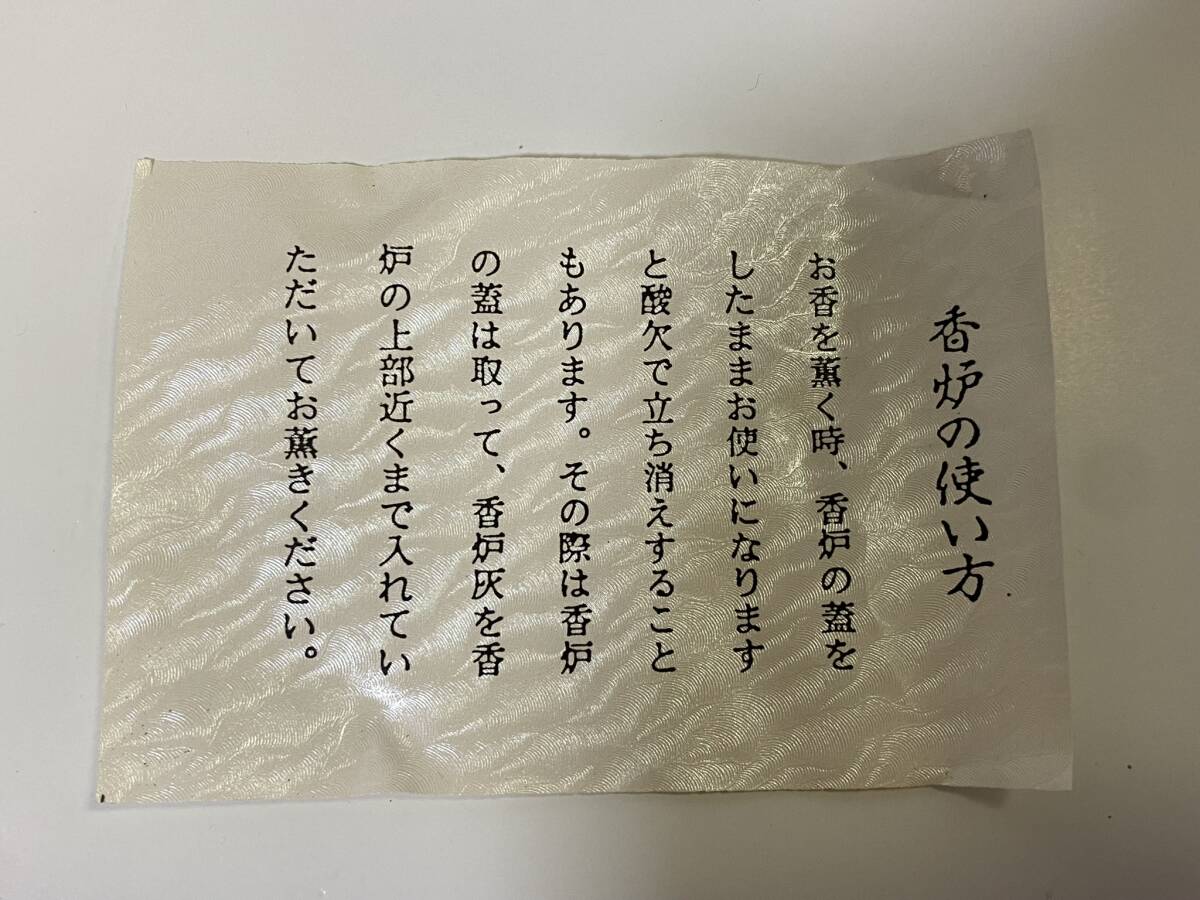 香炉の使い方
お香を薫く時、香炉の蓋を
したままお使いになります
と酸欠で立ち消えすること
もあります。その際は香炉
の蓋は取って、香炉灰を香
炉の上部近くまで入れてい
ただいてお薫きください。